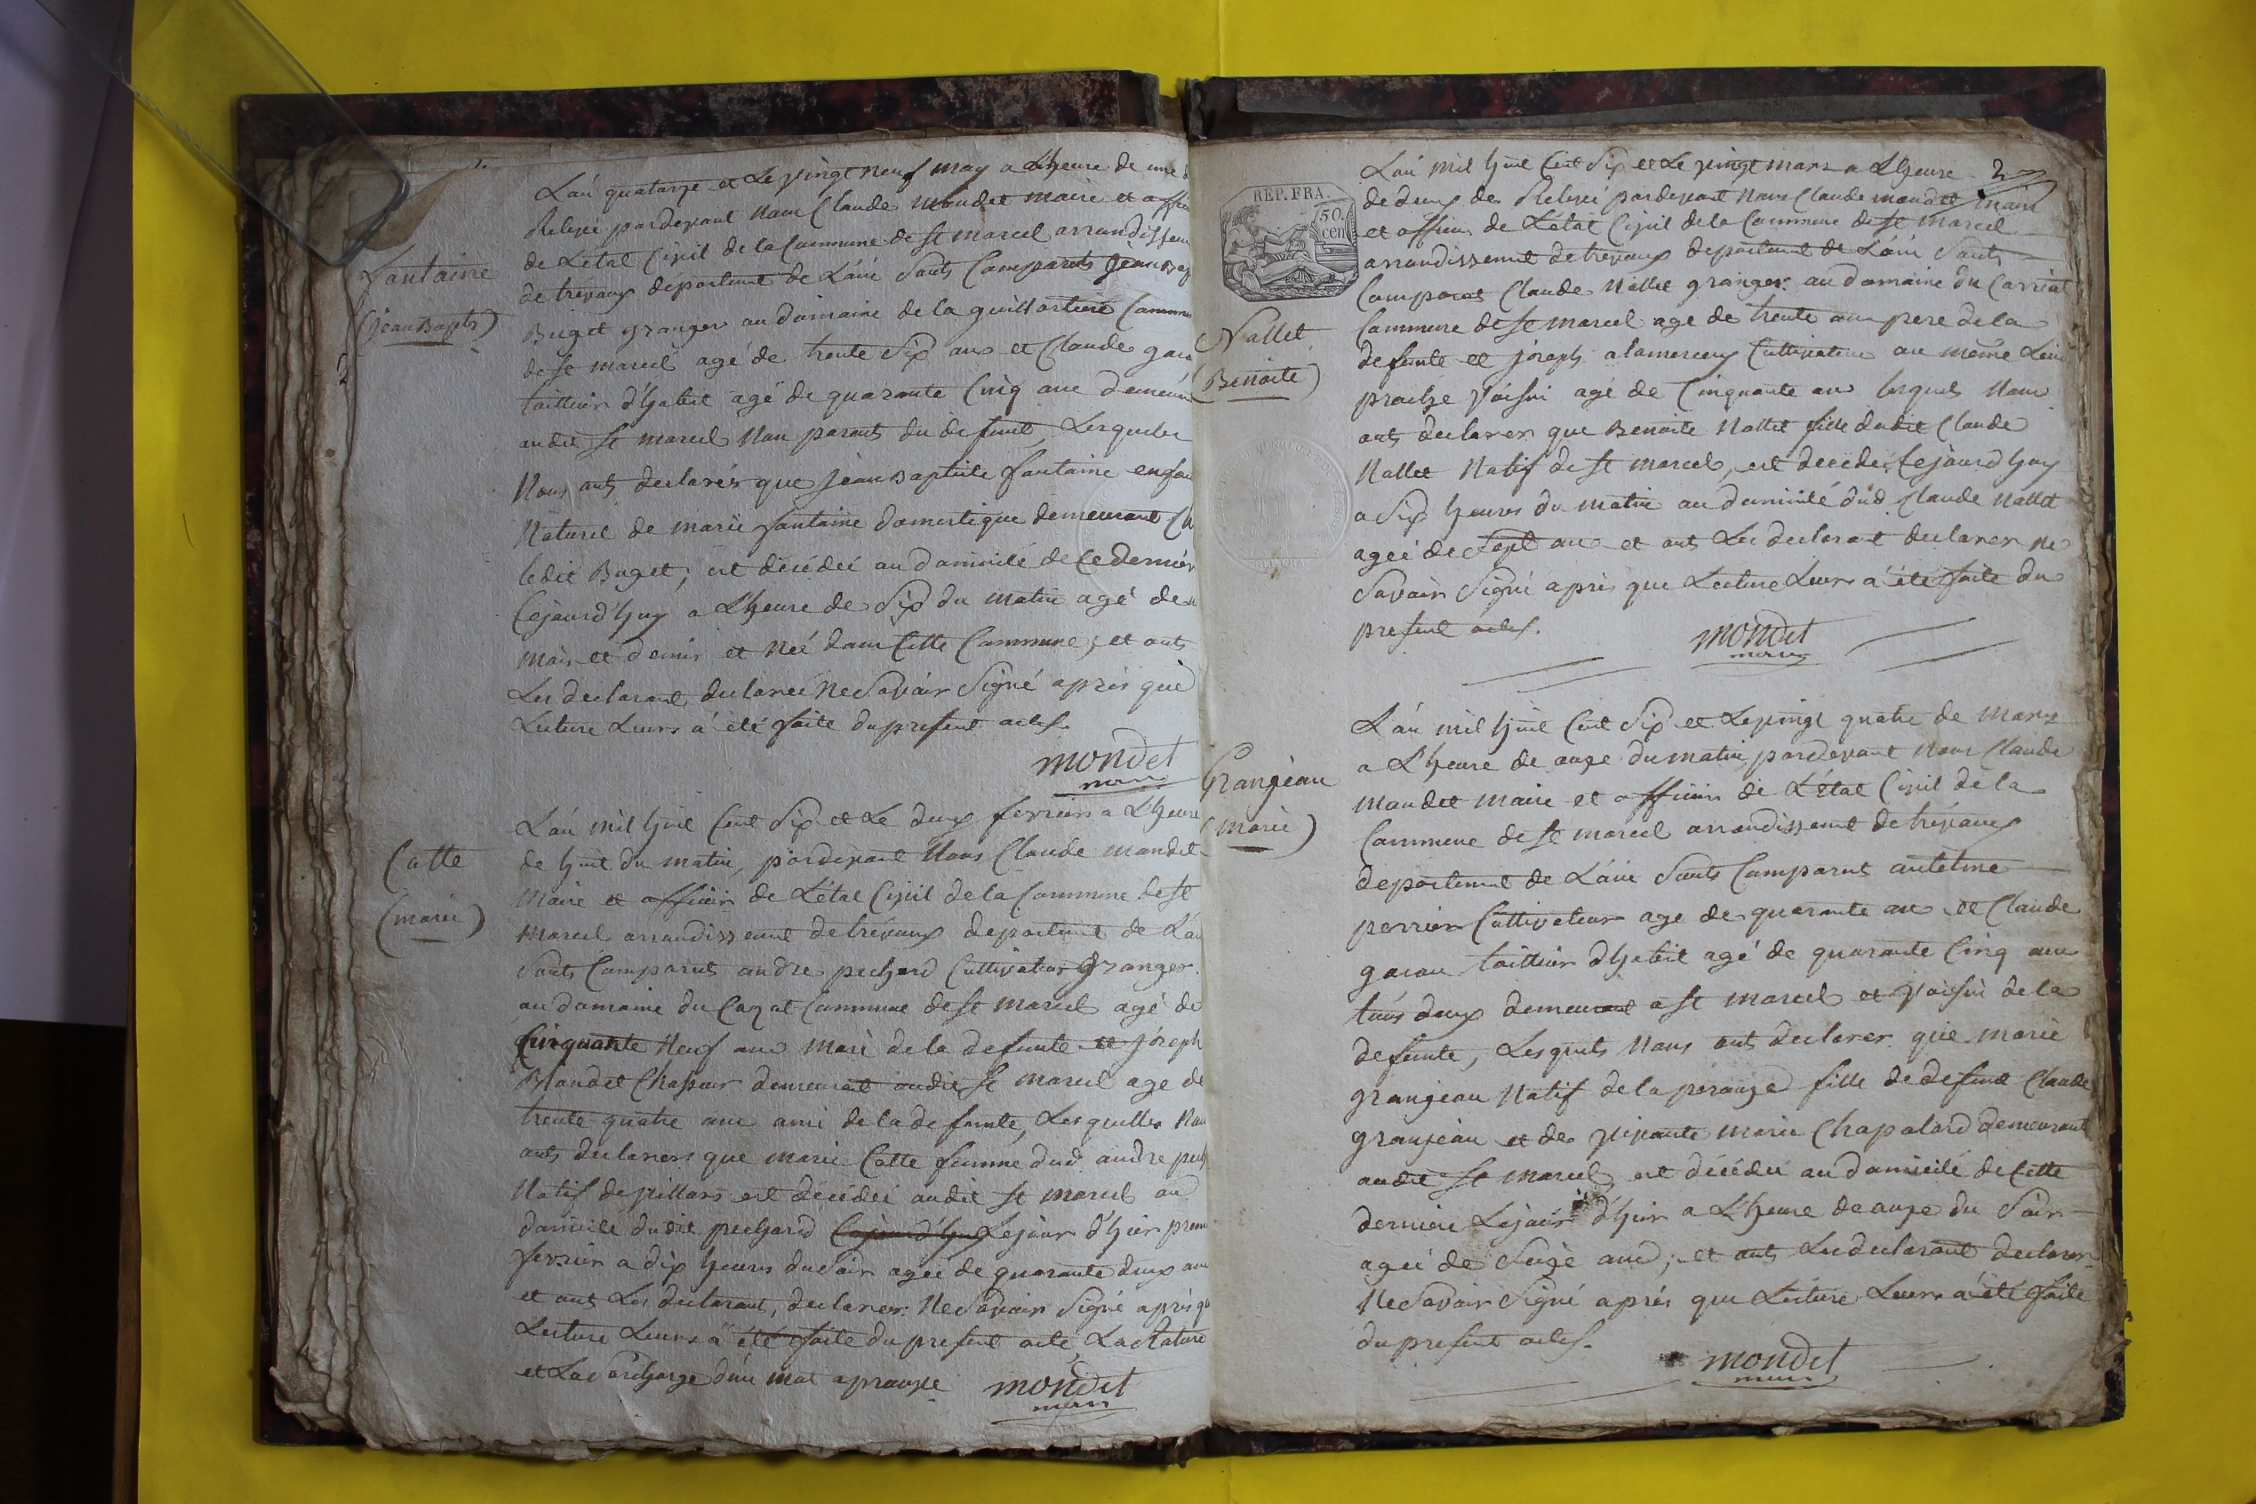 L'an quatorze et Le vingt neuf may a L'heure de une
Relevé pardevant Nous Claude mondet maire et offic
de L'état Civil de la Commune de st marcel arrondissem
de trevoux departement de L'ain Sonts Comparuts jean
Fontaine
(jean Bapte)
Buget granger au domaine de la guillotiere Commune
de st marcel agé de trente Six ans et Claude gacu
tailleur d'habit agé de quarante Cinq ans demeur
audit st marcel Non parents du defunt, Lesquelles
Nous onts declarés que jean Baptiste fontaine enfan
Naturel de marie fontaine domestique demeurant Ch
ledit Buget, est décédé au domicile de Ce dernier
Cejourd'huy a L'heure de Six du matin agé de
mois et demis et Né dans Cette Commune, et onts
Les declarant declareé Ne Savoir Signé après que
Lecture Leurs a été faite du present actes.
mondet
maire
L'an mil huit Cent Six et Le deux fevrier a L'heure
de huit du matin, pardevant Nous Claude mondet
Catte
(marie)
Maire et officier de L'état Civil de la Commune de st
Marcel arrondissement de trevoux departement de L'ain
Sonts Comparuts andre pechard Cultivateur granger
au domaine du Cazat Commune de st marcel agé de
Cinquante Neuf ans Mari de la defunte et joseph
Blondet Chasseur demeurant audit st marcel age de
trente quatre ans ami de la defunte, Lesquelles Nous
onts declarers que marie Catte femme dud. andre pech
Natif de villars est décédeé audit st marcel au
domicile dudit pechard Cejourd'huy Le jour d'hier prem
fevrier a dix heures du Soir ageé de quarante deux ans
et onts Les declarant, declarer Ne Savoir Signé après qu
Lecture Leurs a été faite du present acte, La Rature
et La Surcharge d'un mot aprouve
mondet
maire
2
L'an mil huit Cent Six et Le vingt mars a L'heure
de deux de Relevé pardevant Nous Claude mondet maire
et officier de L'état Civil de la Commune de st marcel
REP. FRA.
50.
cen
arrondissement de trevoux departement de L'ain Sonts
Comparut Claude Nallet granger au domaine du Carriat
Commune de st marcel age de trente ans pere de la
Nallet
(Benoite)
defunte et joseph alamercery Cultivateur au même Lieu
proche Voisin agé de Cinquante ans lesquels Nous
onts declarer que Benoite Nallet fille dudit Claude
Nallet Natif de st marcel, est decedé Cejourd'huy
a Six heures du matin au domicile dud. Claude Nallet
ageé de Sept ans et onts Les declarant declarer Ne
Savoir Signé après que Lecture Leurs a été faite du
present actes.
mondet
maire
L'an mil huit Cent Six et Le vingt quatre de Mars
a L'heure de onze du matin pardevant Nous Claude
Grangeau
(marie)
Mondet maire et officier de L'état Civil de la
Commune de st marcel arrondissement de trévoux
departement de L'ain Sonts Comparut antelme
perrier Cultivateur age de quarante ans et Claude
gacon tailleur d'habit agé de quarante Cinq ans
tous deux demeurant a st marcel et Voisin de la
defunte, Lesquels Nous onts declarer que marie
grangeau Natif de la perouze fille de defunt Claude
granjeau et de vivante marie Chapalard demeurant
audit st marcel, est décédeé au domicile de Cette
derniere Le jour d'hier a L'heure de onze du Soir
ageé de Seize ans; et onts Les declarant declarer
Ne Savoir Signé après que Lecture Leurs a été faite
du present actes.
mondet
maire